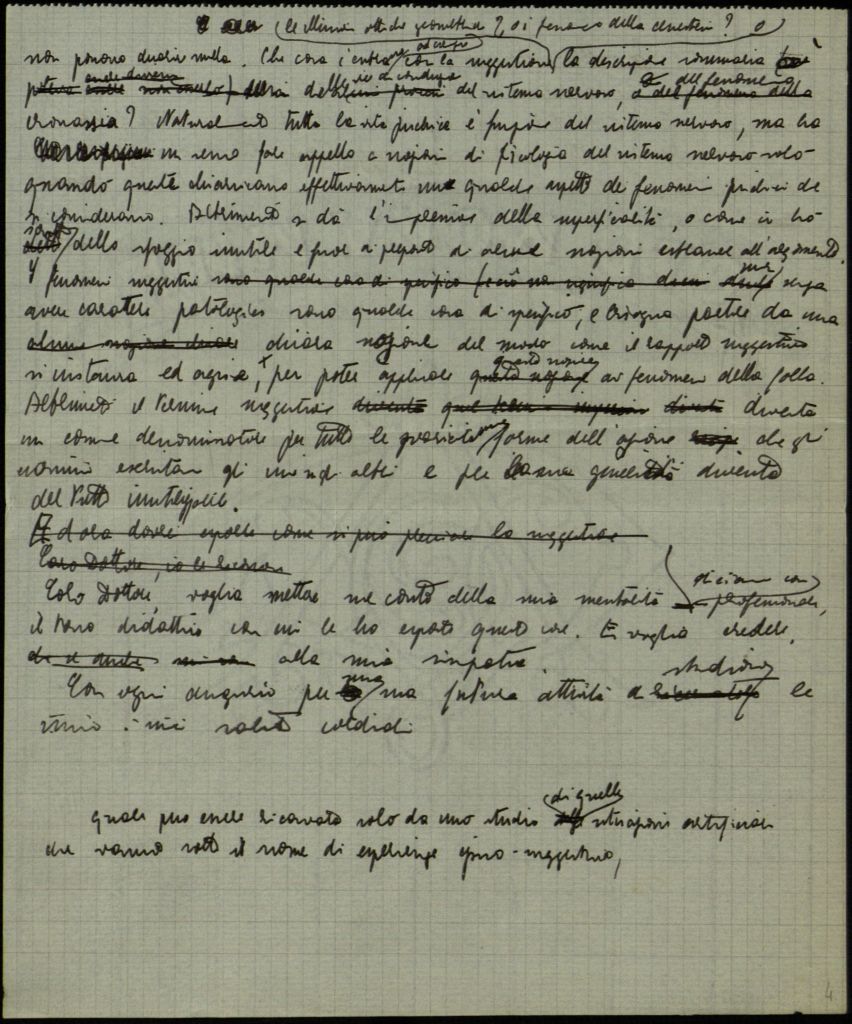 (le illusioni ottiche geometriche?, o i fenomeni della cenestesi? o
non possono duolir nulla. Che cosa c'entra, ad esempio con la suggestione, la descrizione sommaria
dell del sistema nervoso, o del fenomeno della
cronassia? Naturalmente tutta la vita psichica è funzione del sistema nervoso, ma ha
un senso fare appello a nozioni di fisiologia del sistema nervoso solo
quando queste chiariscano effettivamente qualche aspetto dei fenomeni psichici che
si considerano. Altrimenti si dà l'impressione della superficialità, o come si ha
detto dello sfoggio inutile e fuor di proposito di alcune nozioni estranee all'argomento.
I fenomeni suggestivi senza
avere carattere patologico sono qualche cosa di specifico, e bisogna partire da una
chiara nozione del modo come il rapporto suggestivo
si instaura ed agisce, + per poter applicare questa nozione ai fenomeni della folla.
Altrimenti il termine suggestione diventa
un comune denominatore per tutte le svariatissime forme dell'azione che gli
uomini esercitano gli uni sugli altri e per la sua genericità diventa
del tutto inutilizzabile.
Ed ora dovrei esporle come si può la suggestione
Caro Dottore, io le
Caro Dottore, voglia mettere nel conto della mia mentalità diciamo così professionale,
il tono didattico con cui le ho esposto queste cose. E voglia credere,
alla mia simpatia.
Con ogni augurio per una sua futura attività di studioso le
invio i miei saluti cordiali
quale può essere ricavato solo da uno studio di quelle situazioni artificiali
che vanno sotto il nome di esperienze ipno-suggestive,
4